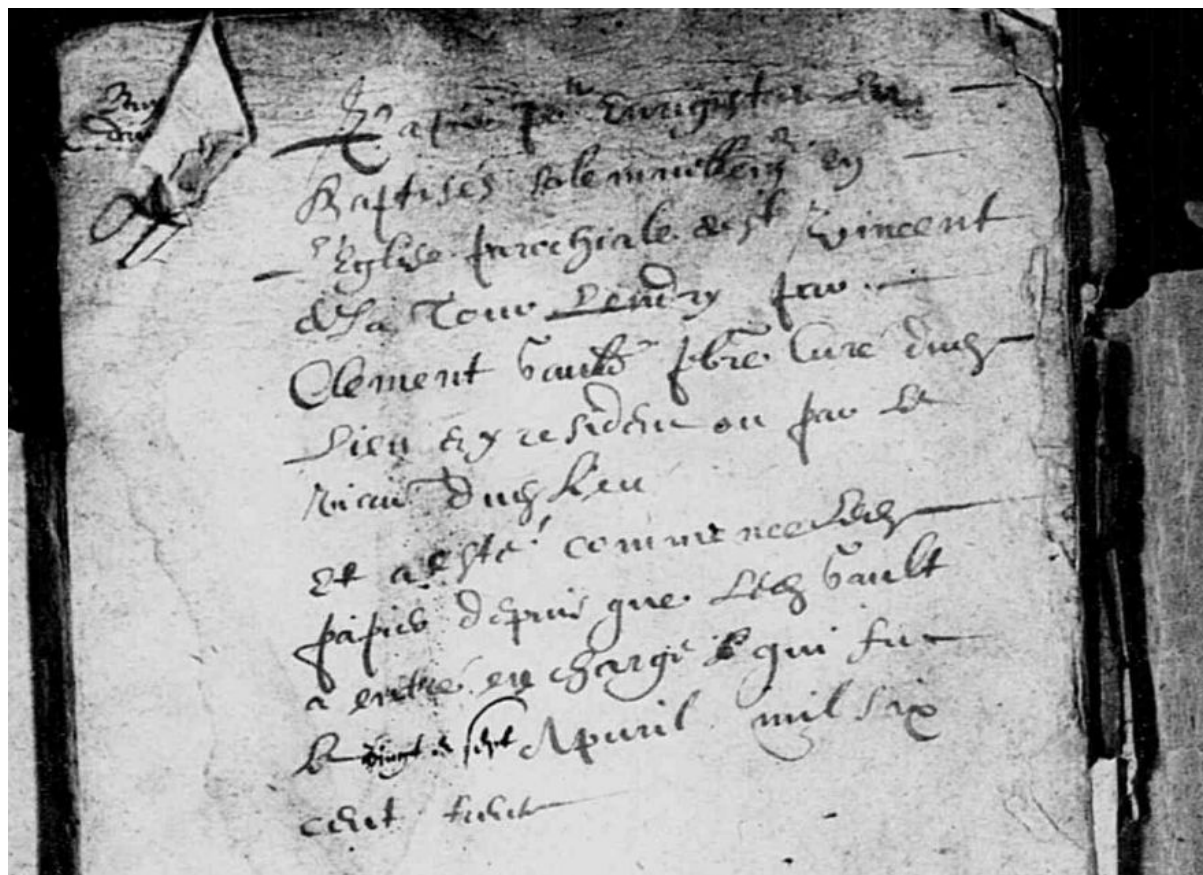 Papier pr Enregistrer les
Baptisés solemnellemt en
l'Eglise parochiale de St Vincent
de la Tour Landry par
Clement Vault pbre Curé dudt
Lieu & y residant ou par le
vicaire dudt Lieu
Et a esté commence ledt
papier depuis que ledt Vault
a entré en charge qui fut
le vingt et sept Apuril mil six
cent trente